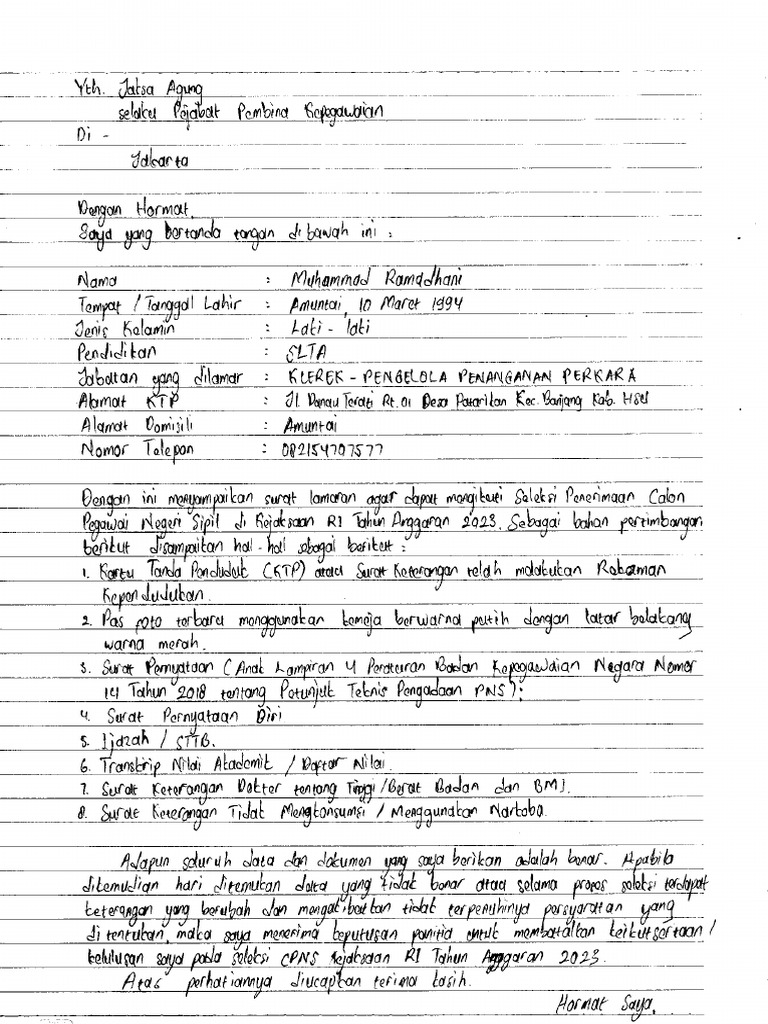 Yth. Jaksa Agung
selaku Pejabat Pembina Kepegawaian
Di -
Jakarta
Dengan Hormat,
Saya yang bertanda tangan dibawah ini :
Nama : Muhammad Ramadhani
Tempat / Tanggal Lahir : Amuntai, 10 Maret 1994
Jenis Kelamin : Laki - laki
Pendidikan : SLTA
Jabatan yang dilamar : KLEREK - PENGELOLA PENANGANAN PERKARA
Alamat KTP : Jl. Danau Terati Rt.01 Desa Patarikan Kec. Banjang Kab. HSU
Alamat Domisili : Amuntai
Nomor Telepon : 082154707577
Dengan ini menyampaikan surat lamaran agar dapat mengikuti Seleksi Penerimaan Calon
Pegawai Negeri Sipil di Kejaksaan RI Tahun Anggaran 2023. Sebagai bahan pertimbangan
berikut disampaikan hal-hal sebagai berikut :
1. Kartu Tanda Penduduk (KTP) atau Surat Keterangan telah melakukan Rekaman
Kependudukan.
2. Pas foto terbaru menggunakan kemeja berwarna putih dengan latar belakang
warna merah.
3. Surat Pernyataan (Anak Lampiran 4 Peraturan Badan Kepegawaian Negara Nomor
14 Tahun 2018 tentang Petunjuk Teknis Pengadaan PNS);
4. Surat Pernyataan Diri
5. Ijazah / STTB.
6. Transkrip Nilai Akademik / Daftar Nilai.
7. Surat Keterangan Dokter tentang Tinggi/Berat Badan dan BMI.
8. Surat Keterangan Tidak Mengkonsumsi / Menggunakan Narkoba.
Adapun seluruh data dan dokumen yang saya berikan adalah benar. Apabila
dikemudian hari ditemukan data yang tidak benar atau selama proses seleksi terdapat
keterangan yang berubah dan mengakibatkan tidak terpenuhinya persyaratan yang
ditentukan, maka saya menerima keputusan panitia untuk membatalkan keikutsertaan/
kelulusan saya pada seleksi CPNS Kejaksaan RI Tahun Anggaran 2023.
Atas perhatiannya diucapkan terima kasih.
Hormat Saya,